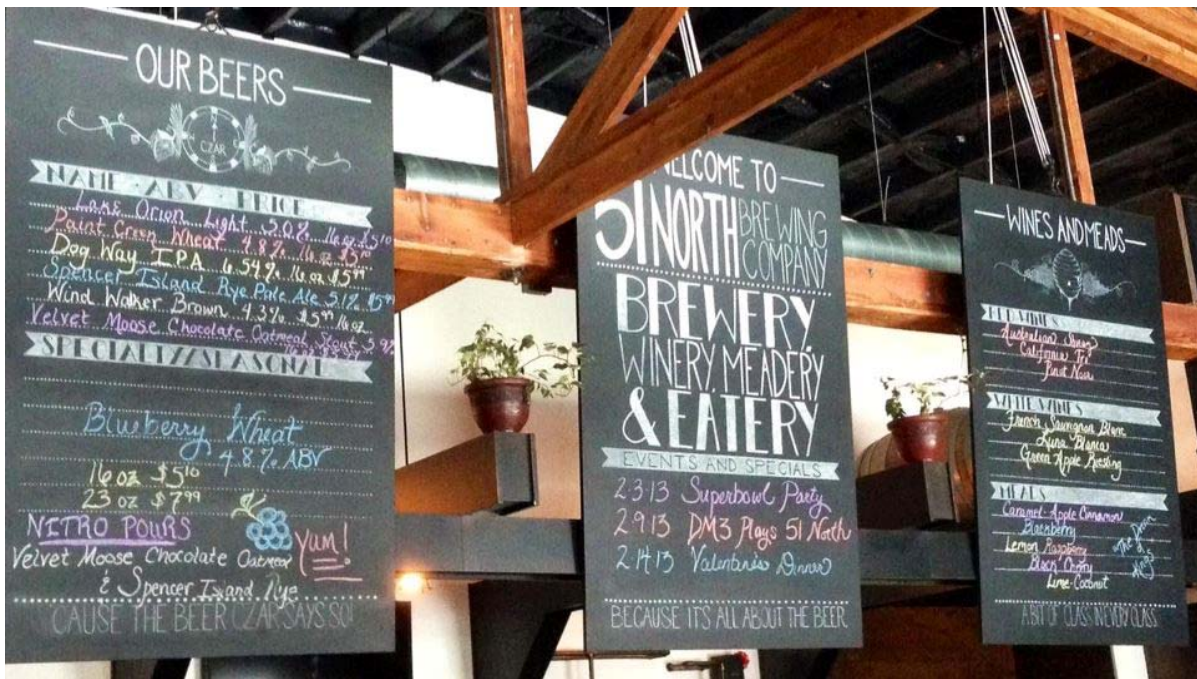 OUR BEERS
CZAR
NAME · ABV · PRICE
Lake Orion Light 5.0% 16 oz $5.10
Paint Creek Wheat 4.8% 16 oz
Dog Way IPA 6.54% 16 oz $5.99
Spencer Island Rye Pale Ale 5.1%
Wind Walker Brown 4.3% $5.99 16 oz
Velvet Moose Chocolate Oatmeal Stout
SPECIALTY/SEASONAL
Blueberry Wheat
4.8% ABV
16 oz $5.10
23 oz $7.99
NITRO POURS
Yum!
Velvet Moose Chocolate Oatmeal
& Spencer Island Rye
CAUSE THE BEER CZAR SAYS SO!
WELCOME TO
51 NORTH BREWING COMPANY
BREWERY,
WINERY, MEADERY
& EATERY
EVENTS AND SPECIALS
2.3.13 Superbowl Party
2.9.13 DM3 Plays 51 North
2.14.13 Valentine's Dinner
BECAUSE IT'S ALL ABOUT THE BEER
WINES AND MEADS
RED WINES
Australian Shiraz
California Tri
Pinot Noir
WHITE WINES
French Sauvignon Blanc
Luna Blanca
Green Apple Riesling
MEADS
Caramel-Apple Cinnamon
Blackberry
Lemon Raspberry
Black Cherry
Lime-Coconut
"The Drink of Kings"
A BIT OF CLASS IN EVERY GLASS